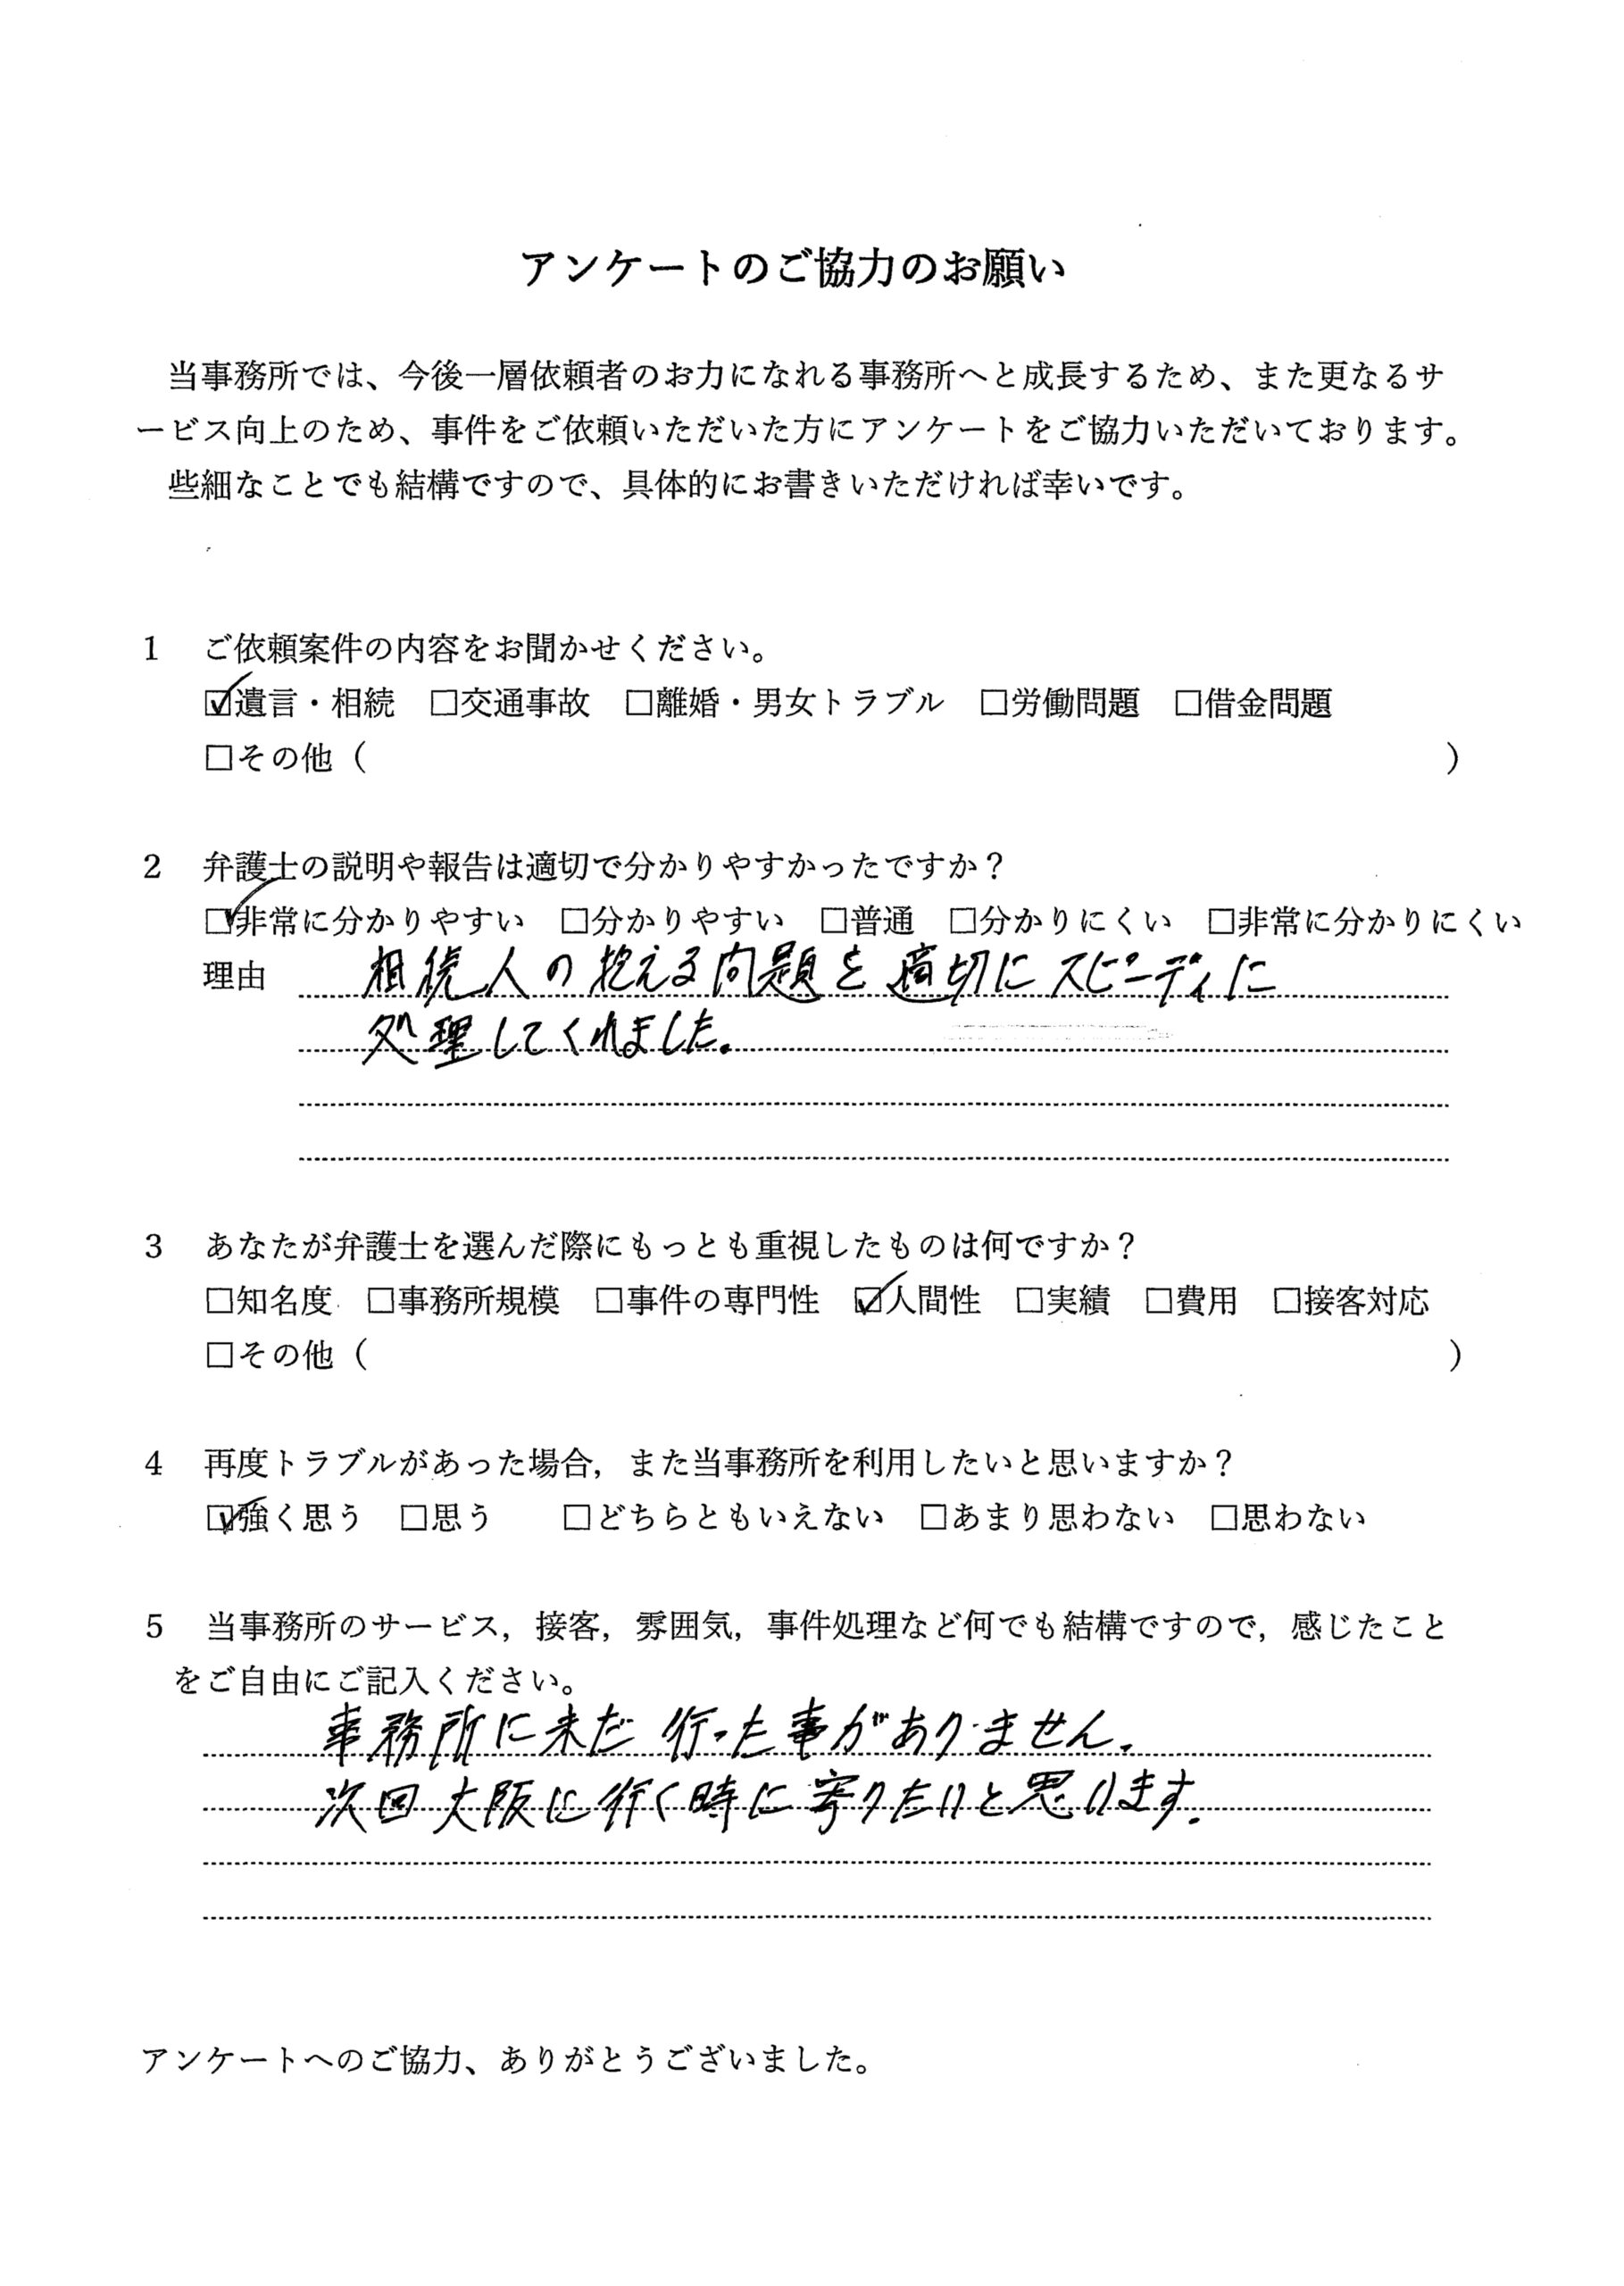 アンケートのご協力のお願い
当事務所では、今後一層依頼者のお力になれる事務所へと成長するため、また更なるサ
ービス向上のため、事件をご依頼いただいた方にアンケートをご協力いただいております。
些細なことでも結構ですので、具体的にお書きいただければ幸いです。
1 ご依頼案件の内容をお聞かせください。
☑遺言・相続 □交通事故 □離婚・男女トラブル □労働問題 □借金問題
□その他（ ）
2 弁護士の説明や報告は適切で分かりやすかったですか？
☑非常に分かりやすい □分かりやすい □普通 □分かりにくい □非常に分かりにくい
理由 相続人の抱える問題を適切にスピーディに
処理してくれました。
3 あなたが弁護士を選んだ際にもっとも重視したものは何ですか？
□知名度 □事務所規模 □事件の専門性 ☑人間性 □実績 □費用 □接客対応
□その他（ ）
4 再度トラブルがあった場合，また当事務所を利用したいと思いますか？
☑強く思う □思う □どちらともいえない □あまり思わない □思わない
5 当事務所のサービス，接客，雰囲気，事件処理など何でも結構ですので，感じたこと
をご自由にご記入ください。
事務所に未だ行った事がありません.
次回大阪に行く時に寄りたいと思います.
アンケートへのご協力、ありがとうございました。